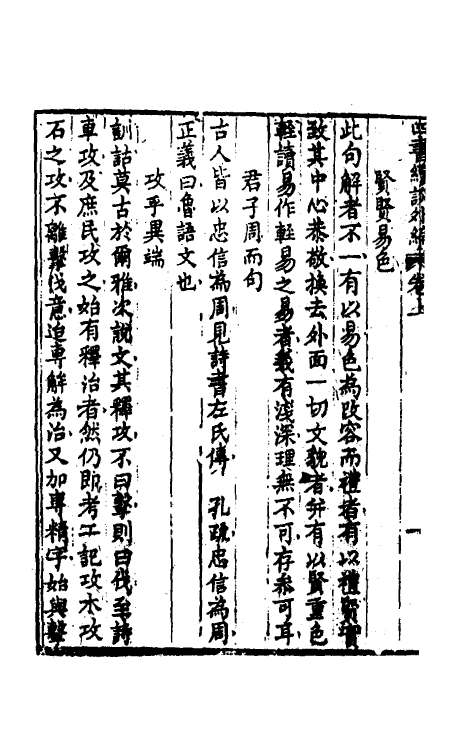 四書經註外編 卷上 一
賢賢易色
此句解者不一有以易色為改容而禮者有以禮賢實
致其中心恭敬換去外面一切文貌者并有以賢重色
輕讀易作輕易之易者載有淺深理無不可存參可耳
君子周而句
古人皆以忠信為周見詩書左氏傳 孔疏忠信為周
正義曰魯語文也
攻乎異端
訓詁莫古於爾雅次說文其釋攻不曰擊則曰伐至詩
車攻及庶民攻之始有釋治者然仍即考工記攻木攻
石之攻不離擊伐意迨專解為治又加專精字始與擊